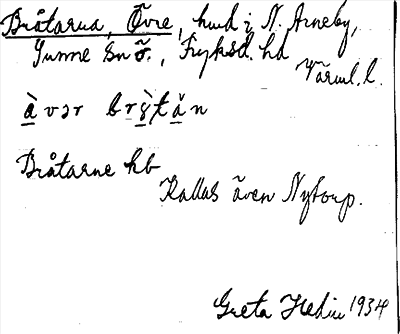 Bråtarna, Övre, hmd i N. Arneby,
Gunnarsn ö., Fryksd. hd
Värml. l.
àvər brɣ̀tăn
Bråtarne hb
Kallas även Nytorp.
Greta Hedin 1934